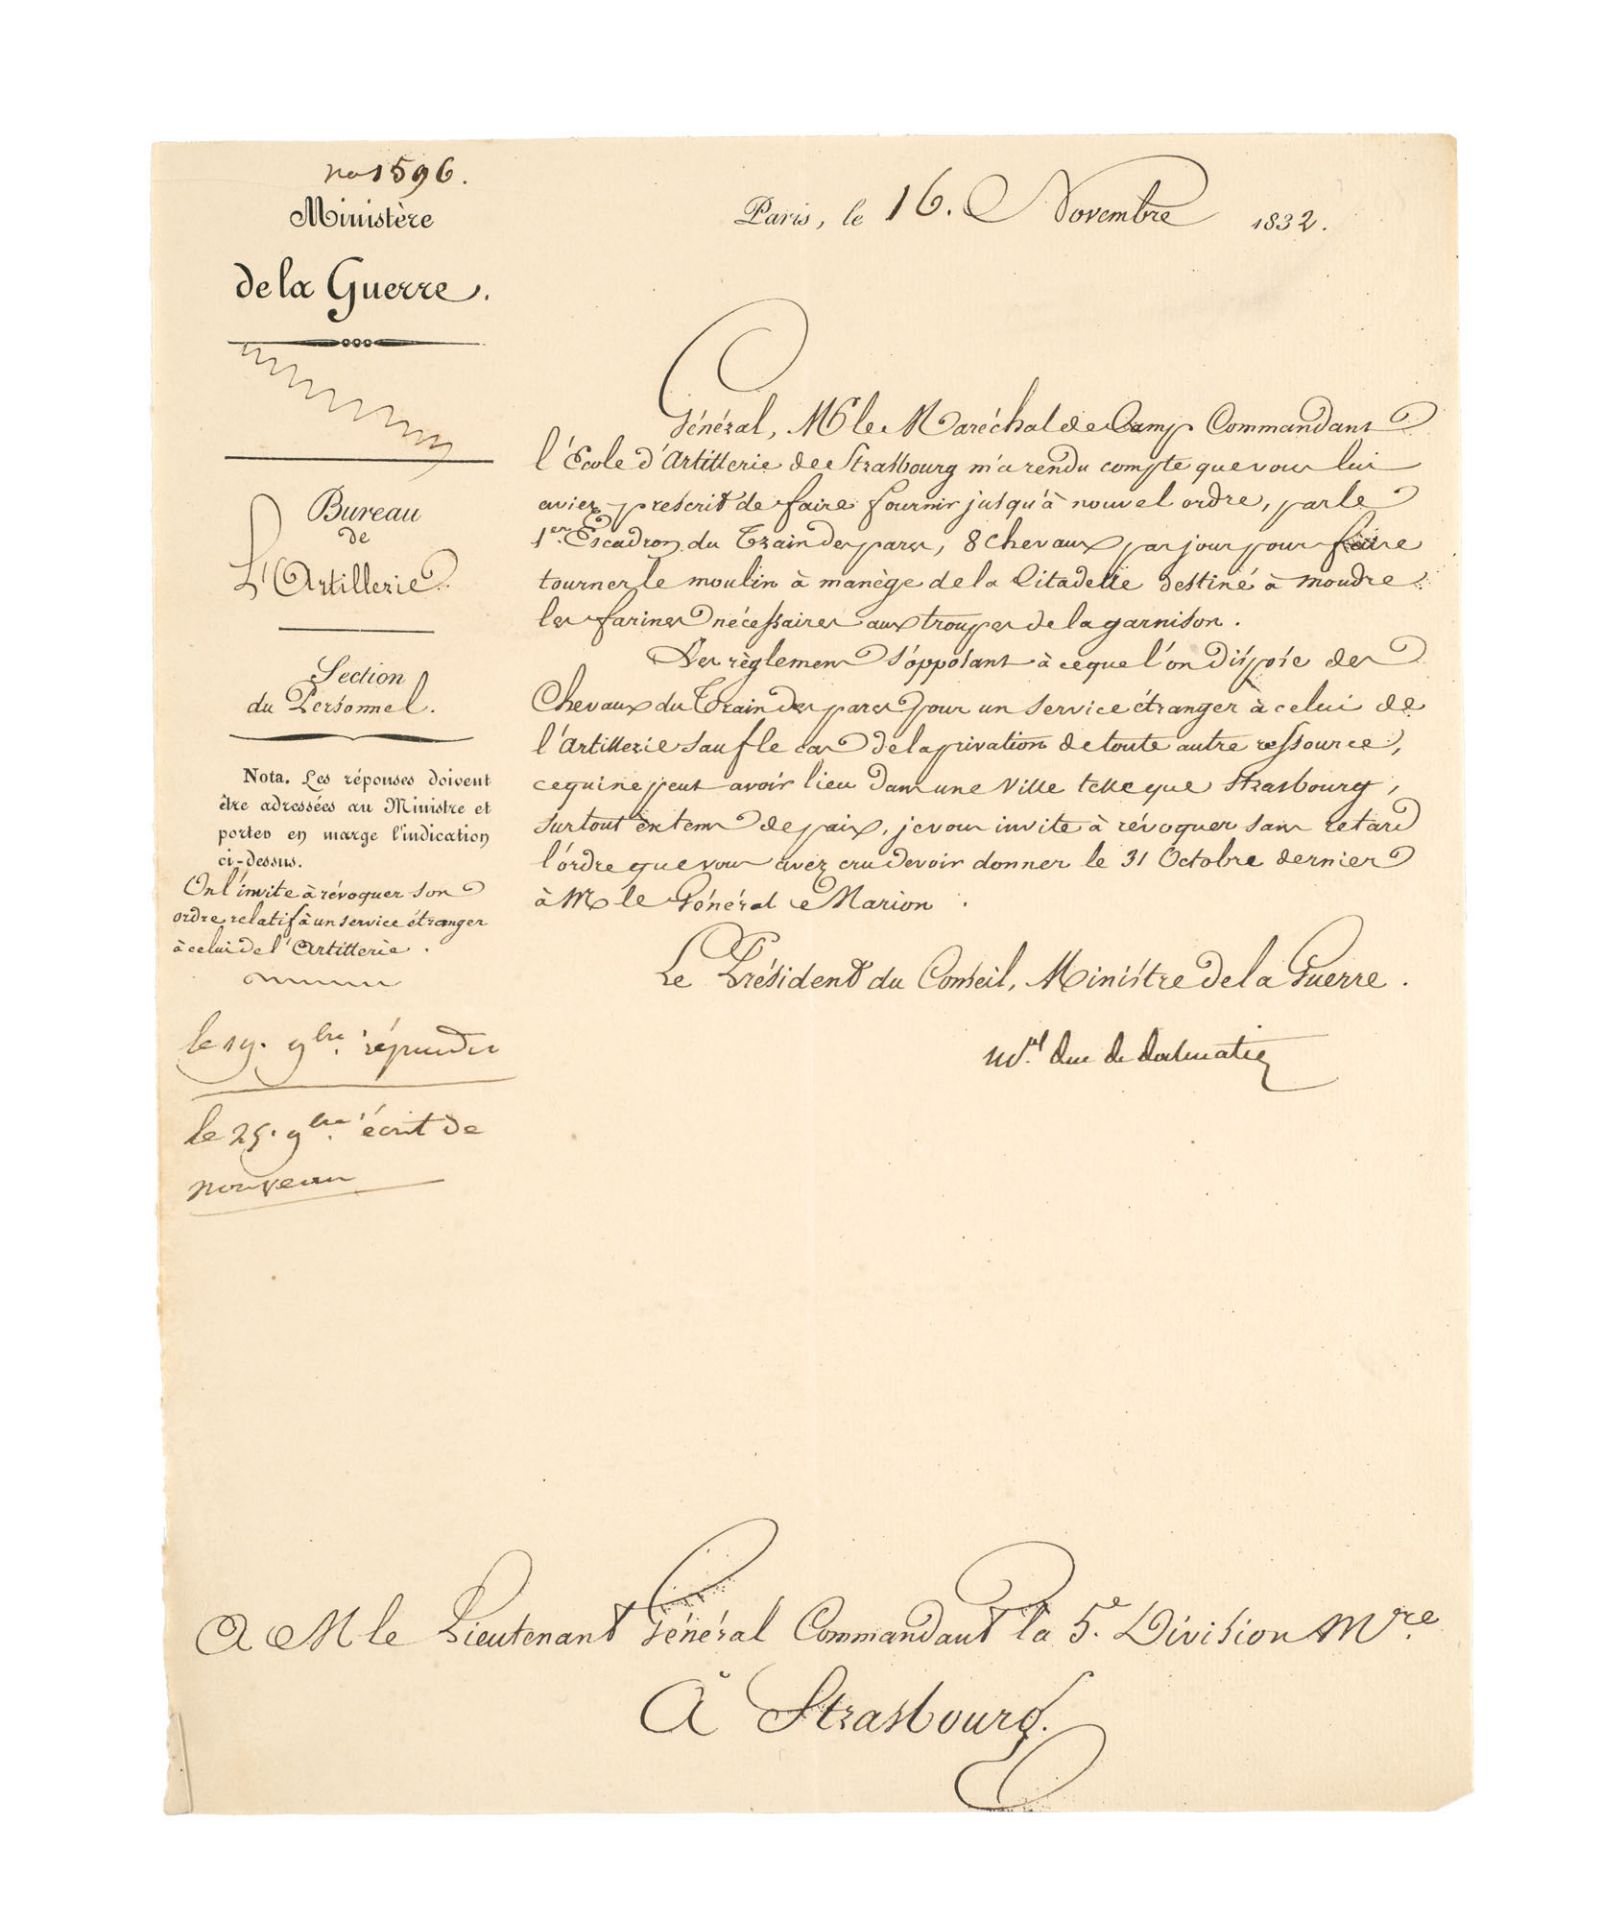 no 1596.
Ministère
de la Guerre.
Bureau
de
L'Artillerie.
Section
du Personnel.
Nota. Les réponses doivent
être adressées au Ministre et
porter en marge l'indication
ci-dessus.
On l'invite à révoquer son
ordre relatif à un service étranger
à celui de l'Artillerie.
le 19. 9bre. répondu
le 25. 9bre. écrit de
nouveau
Paris, le 16. Novembre 1832.
Général, Mr le Maréchal de Camp Commandant
l'École d'Artillerie de Strasbourg m'a rendu compte que vous lui
aviez prescrit de faire fournir jusqu'à nouvel ordre, par le
1er. Escadron du Train des parcs, 8 chevaux par jour pour faire
tourner le moulin à manège de la Citadelle destiné à moudre
les farines nécessaires aux troupes de la garnison.
Les règlemens s'opposant à ce que l'on dispose des
Chevaux du Train des parcs pour un service étranger à celui de
l'Artillerie sauf le cas de la privation de toute autre ressource,
ce qui ne peut avoir lieu dans une Ville telle que Strasbourg,
surtout en tems de paix, je vous invite à révoquer sans retard
l'ordre que vous avez cru devoir donner le 31 Octobre dernier
à M le Général Marion.
Le Président du Conseil, Ministre de la Guerre.
Mal. duc de dalmatie
A M le Lieutenant Général Commandant la 5e. Division Mre.
À Strasbourg.